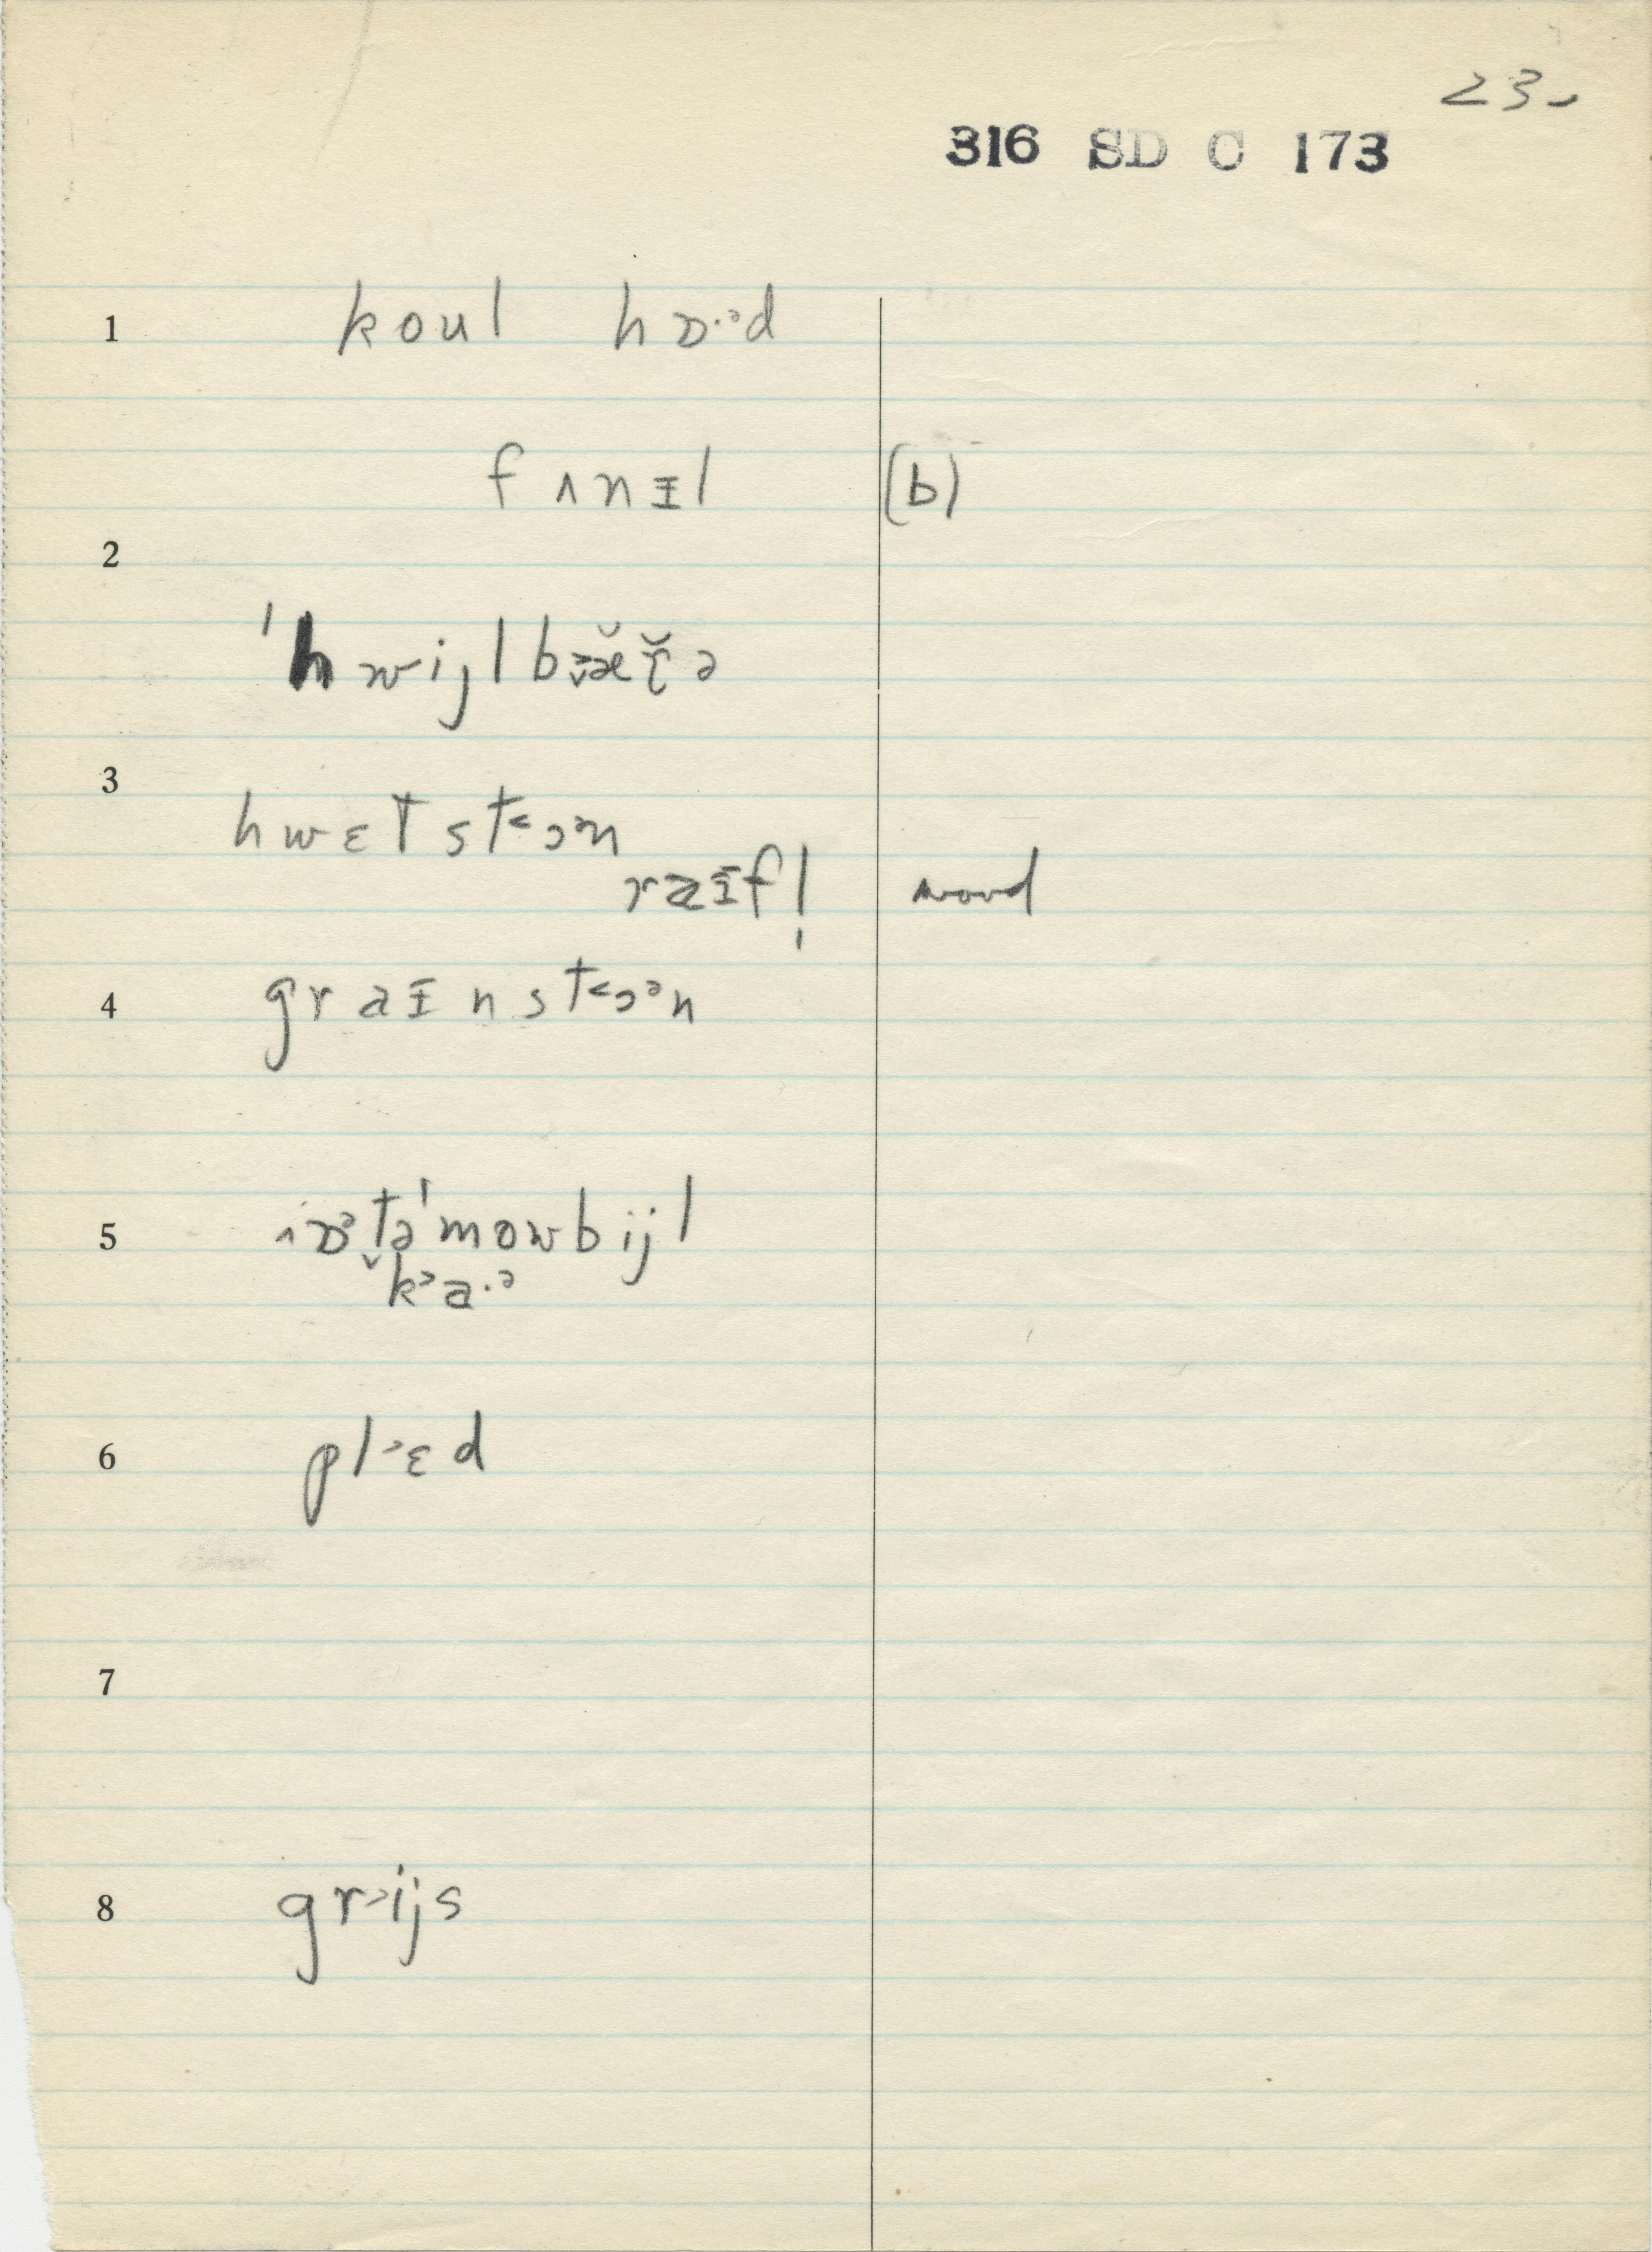 23.
316 SD C 173
1 koul hɒ·ᵊd
fʌnɪl (b)
2
ˈhwijlbæ̆r̆ə
3
hwɛt st˂ɔᵊn
raɪfl̩ wood
4 graɪnst˂ɔᵊn
5 ɒᵊt̬əˈmowbijl
k˃a·ᵊ
6 pl˃ɛd
7
8 gr˃ijs